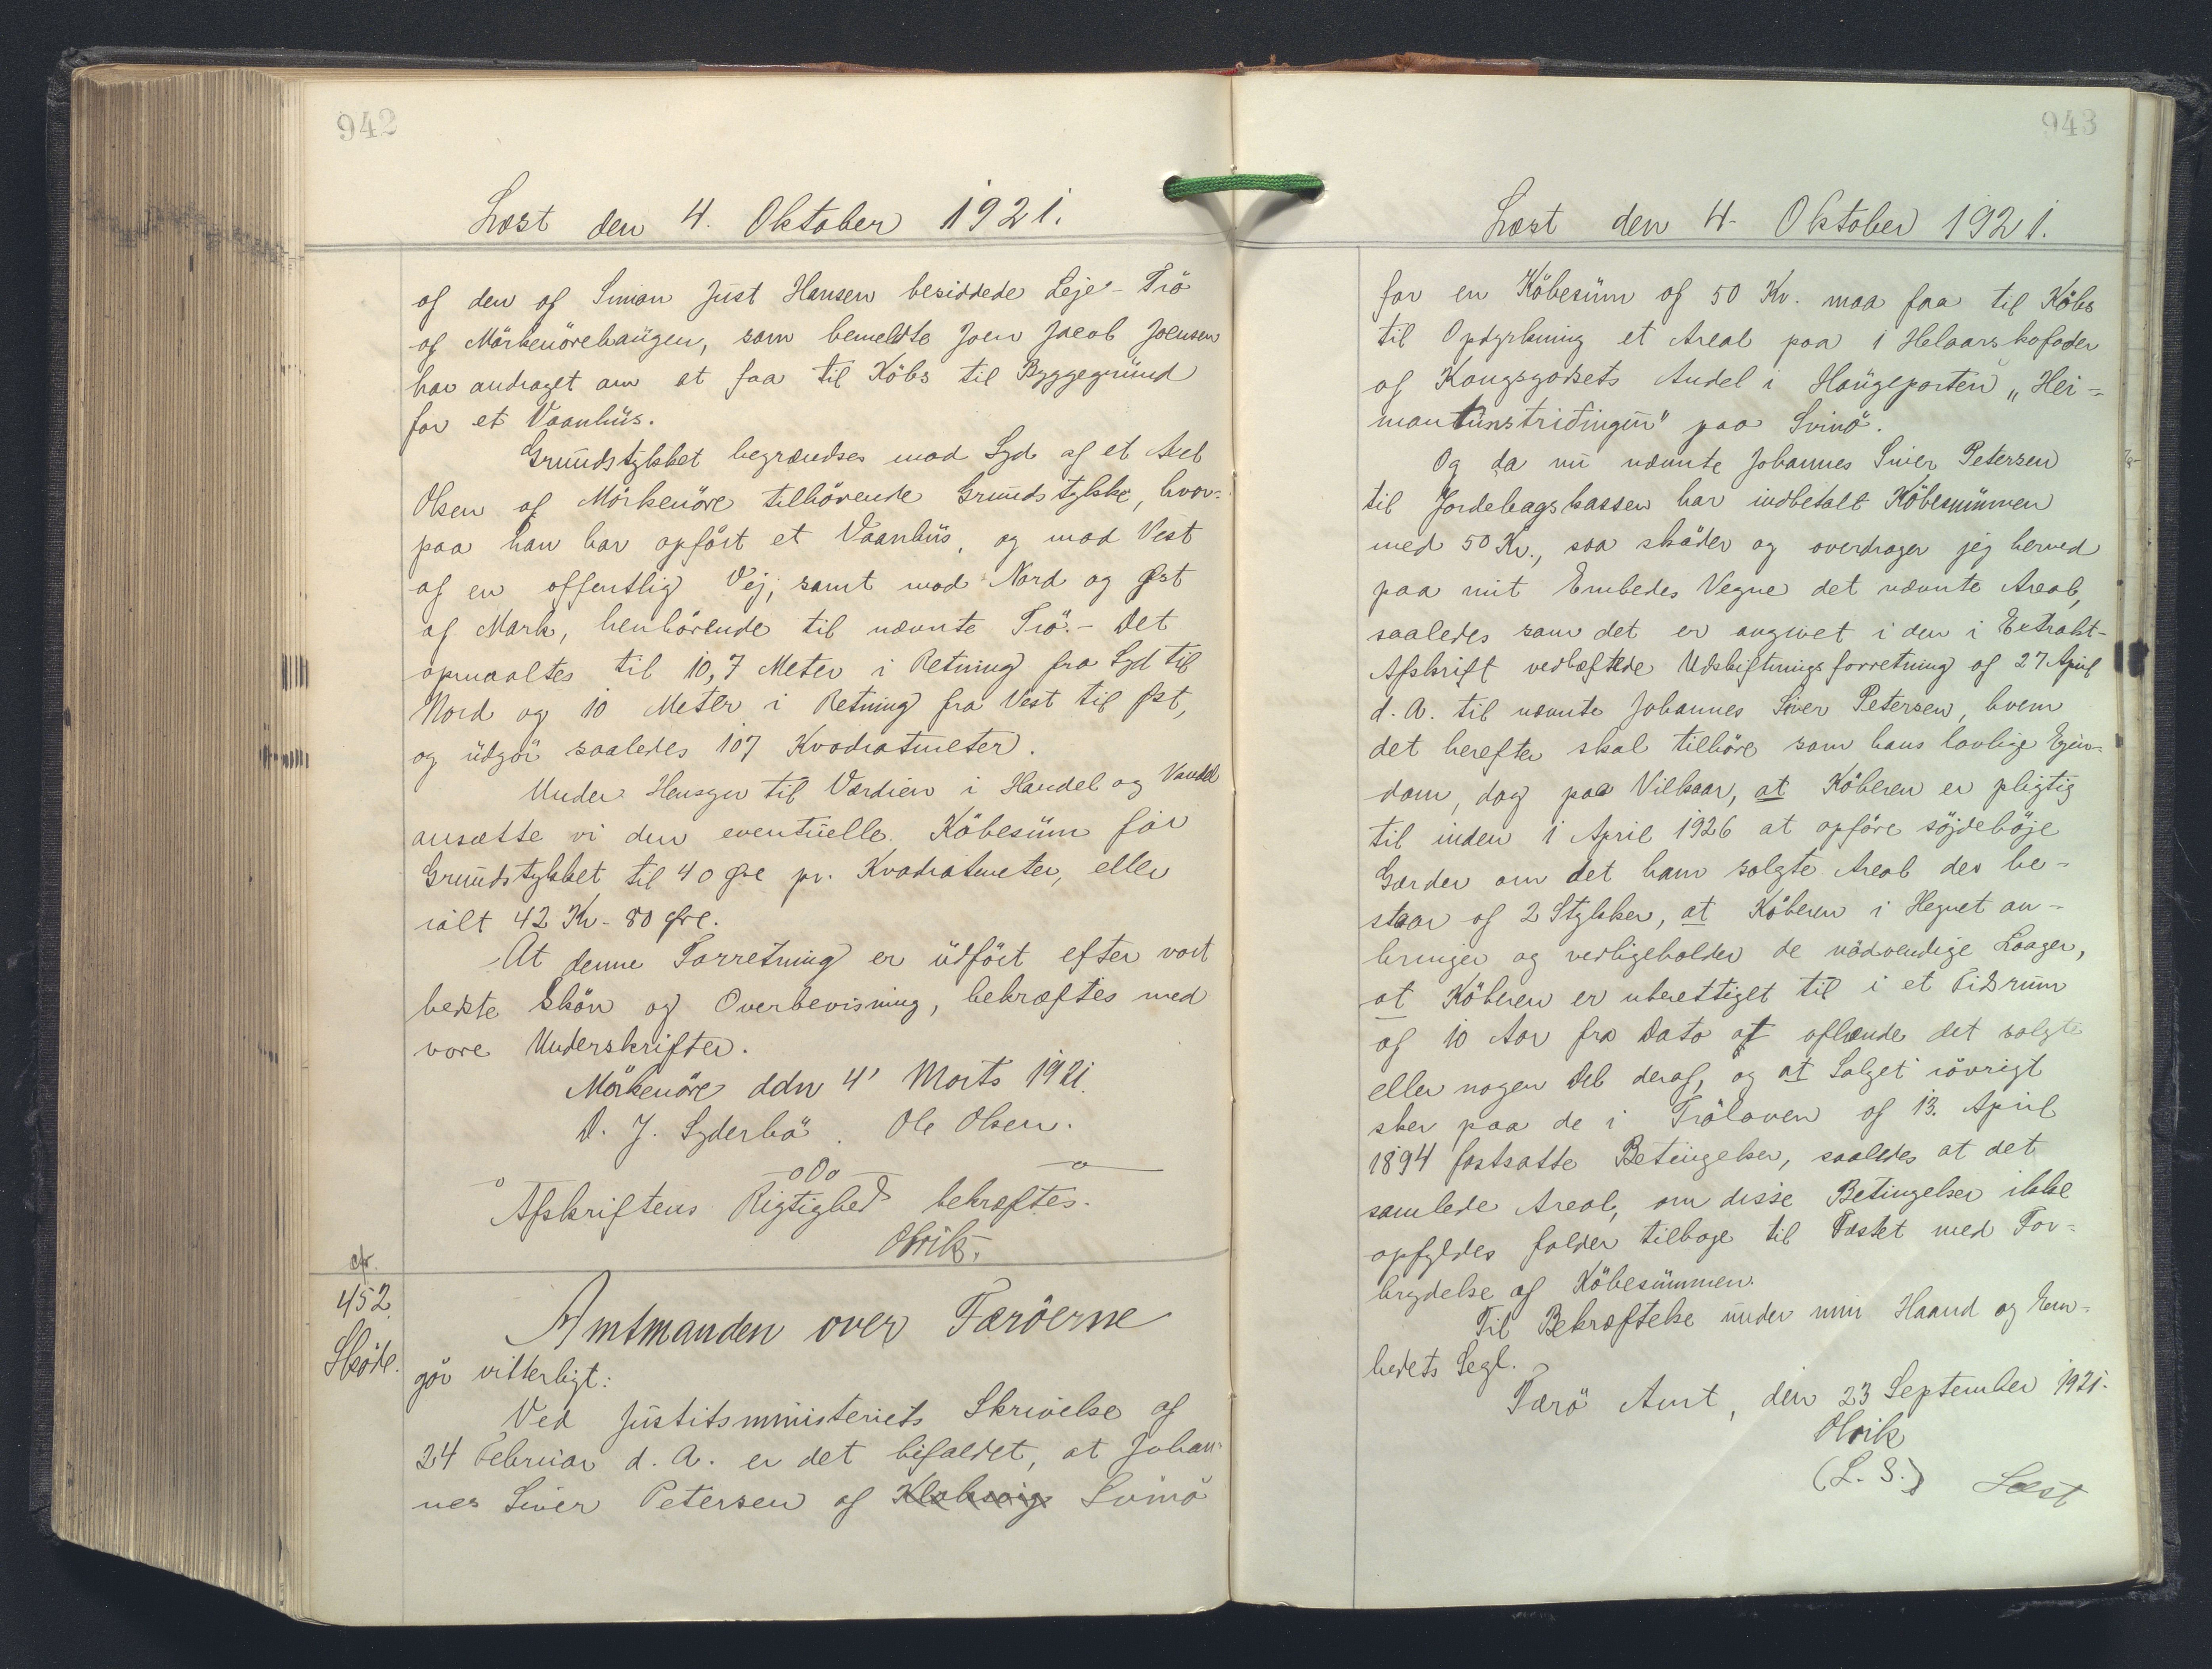 942
Læst den 4. Oktober 1921.
af den af Simon Just Hansen besiddede Leje-Trö
af Mörkenörehaugen, som bemeldte Joen Jacob Joensen
har andraget om at faa til Köbs til Byggegrund
for et Vaanhus.
Grundstykket begrændses mod Syd af et Axel
Olsen af Mörkenöre tilhörende Grundstykke, hvor-
paa han har opfört et Vaanhus, og mod Vest
af en offentlig Vej, samt mod Nord og Øst
af Mark, henhörende til nævnte Trö. - Det
opmaaltes til 10,7 Meter i Retning fra Syd til
Nord og 10 Meter i Retning fra Vest til Øst,
og udgör saaledes 107 Kvadratmeter.
Under Hensyn til Værdien i Handel og Vandel
ansætte vi den eventuelle Köbesum for
Grundstykket til 40 Øre pr. Kvadratmeter, eller
ialt 42 Kr. 80 Øre.
At denne Forretning er udfört efter vort
bedste Skön og Overbevisning, bekræftes med
vore Underskrifter.
Mörkenöre ddn 4' Marts 1921.
D. J. Syderbö. Ole Olsen.
oOo
Afskriftens Rigtighed bekræftes.
Olrik.
cfr.
452.
Sköde.
Amtmanden over Færöerne
gör vitterligt:
Ved Justitsministeriets Skrivelse af
24 Februar d. A. er det bifaldet, at Johan-
nes Siver Petersen af Klaksvig Svinö
943
Læst den 4. Oktober 1921.
for en Köbesum af 50 Kr. maa faa til Köbs
til Opdyrkning et Areal paa 1 Helaarskofoder
af Kongsgodsets Andel i Haugeparten "Hei-
mantunstriðingur" paa Svinö.
Og da nu nævnte Johannes Siver Petersen
til Jordebogskassen har indbetalt Köbesummen
med 50 Kr., saa sköder og overdrager jeg herved
paa mit Embedes Vegne det nævnte Areal,
saaledes som det er angivet i den i Extrakt-
Afskrift vedhæftede Udskiftningsforretning af 27 April
d. A. til nævnte Johannes Siver Petersen, hvem
det herefter skal tilhöre som hans lovlige Ejen-
dom, dog paa Vilkaar, at Köberen er pligtig
til inden 1 April 1926 at opföre söjdehöje
Gærder om det ham solgte Areal der be-
staar af 2 Stykker, at Köberen i Hegnet an-
bringer og vedligeholder de nödvendige Laager,
at Köberen er uberettiget til i et Tidsrum
af 10 Aar fra Dato at afhænde det solgte
eller nogen Del deraf, og at Salget iövrigt
sker paa de i Tröloven af 13. April
1894 fastsatte Betingelser, saaledes at det
samlede Areal, om disse Betingelser ikke
opfyldes falder tilbage til Fæstet med For-
brydelse af Köbesummen.
Til Bekræftelse under min Haand og Em-
bedets Segl.
Færö Amt, den 23 September 1921.
Olrik
(L. S.)
Læst